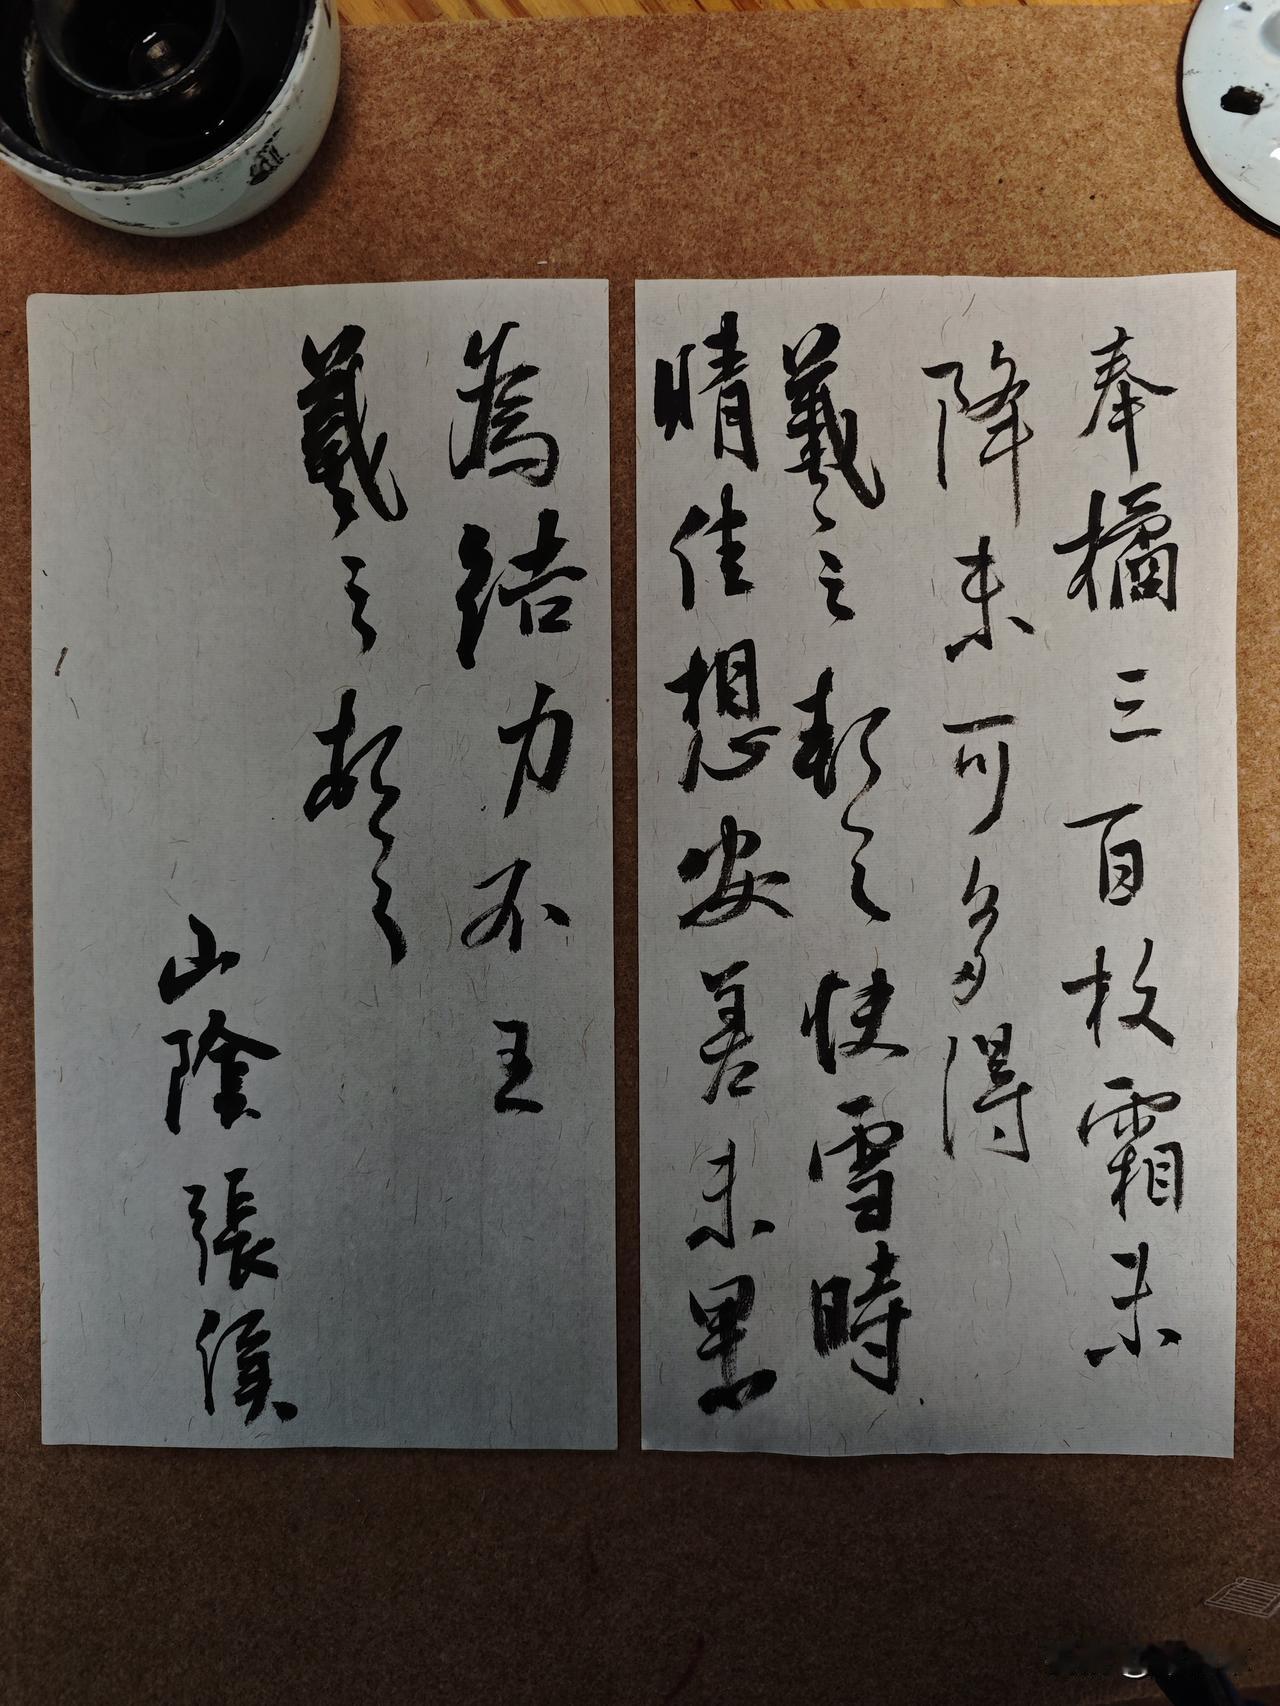 奉橘三百枚霜未
降未可多得
羲之頓首快雪時
晴佳想安善未果
為結力不王
羲之頓首
山陰張侯